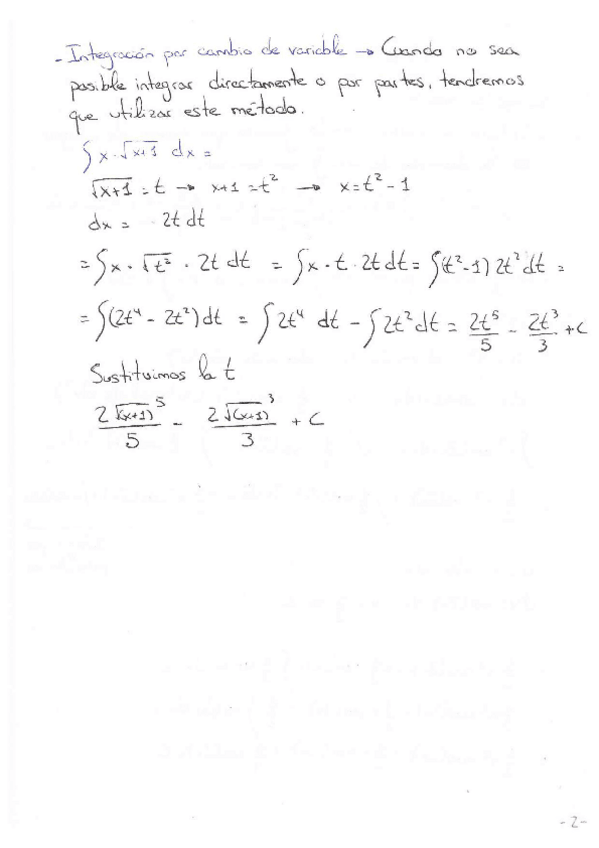 - Integración por cambio de variable → Cuando no sea
posible integrar directamente o por partes, tendremos
que utilizar este método.
∫ x · √x+1 dx =
√x+1 = t → x+1 = t² → x = t² - 1
dx = 2t dt
= ∫ x · √t² · 2t dt = ∫ x · t · 2t dt = ∫(t²-1) 2t² dt =
= ∫(2t⁴ - 2t²) dt = ∫ 2t⁴ dt - ∫ 2t² dt = 2t⁵/5 - 2t³/3 + C
Sustituimos la t
2√(x+1)⁵/5 - 2√(x+1)³/3 + C
-2-